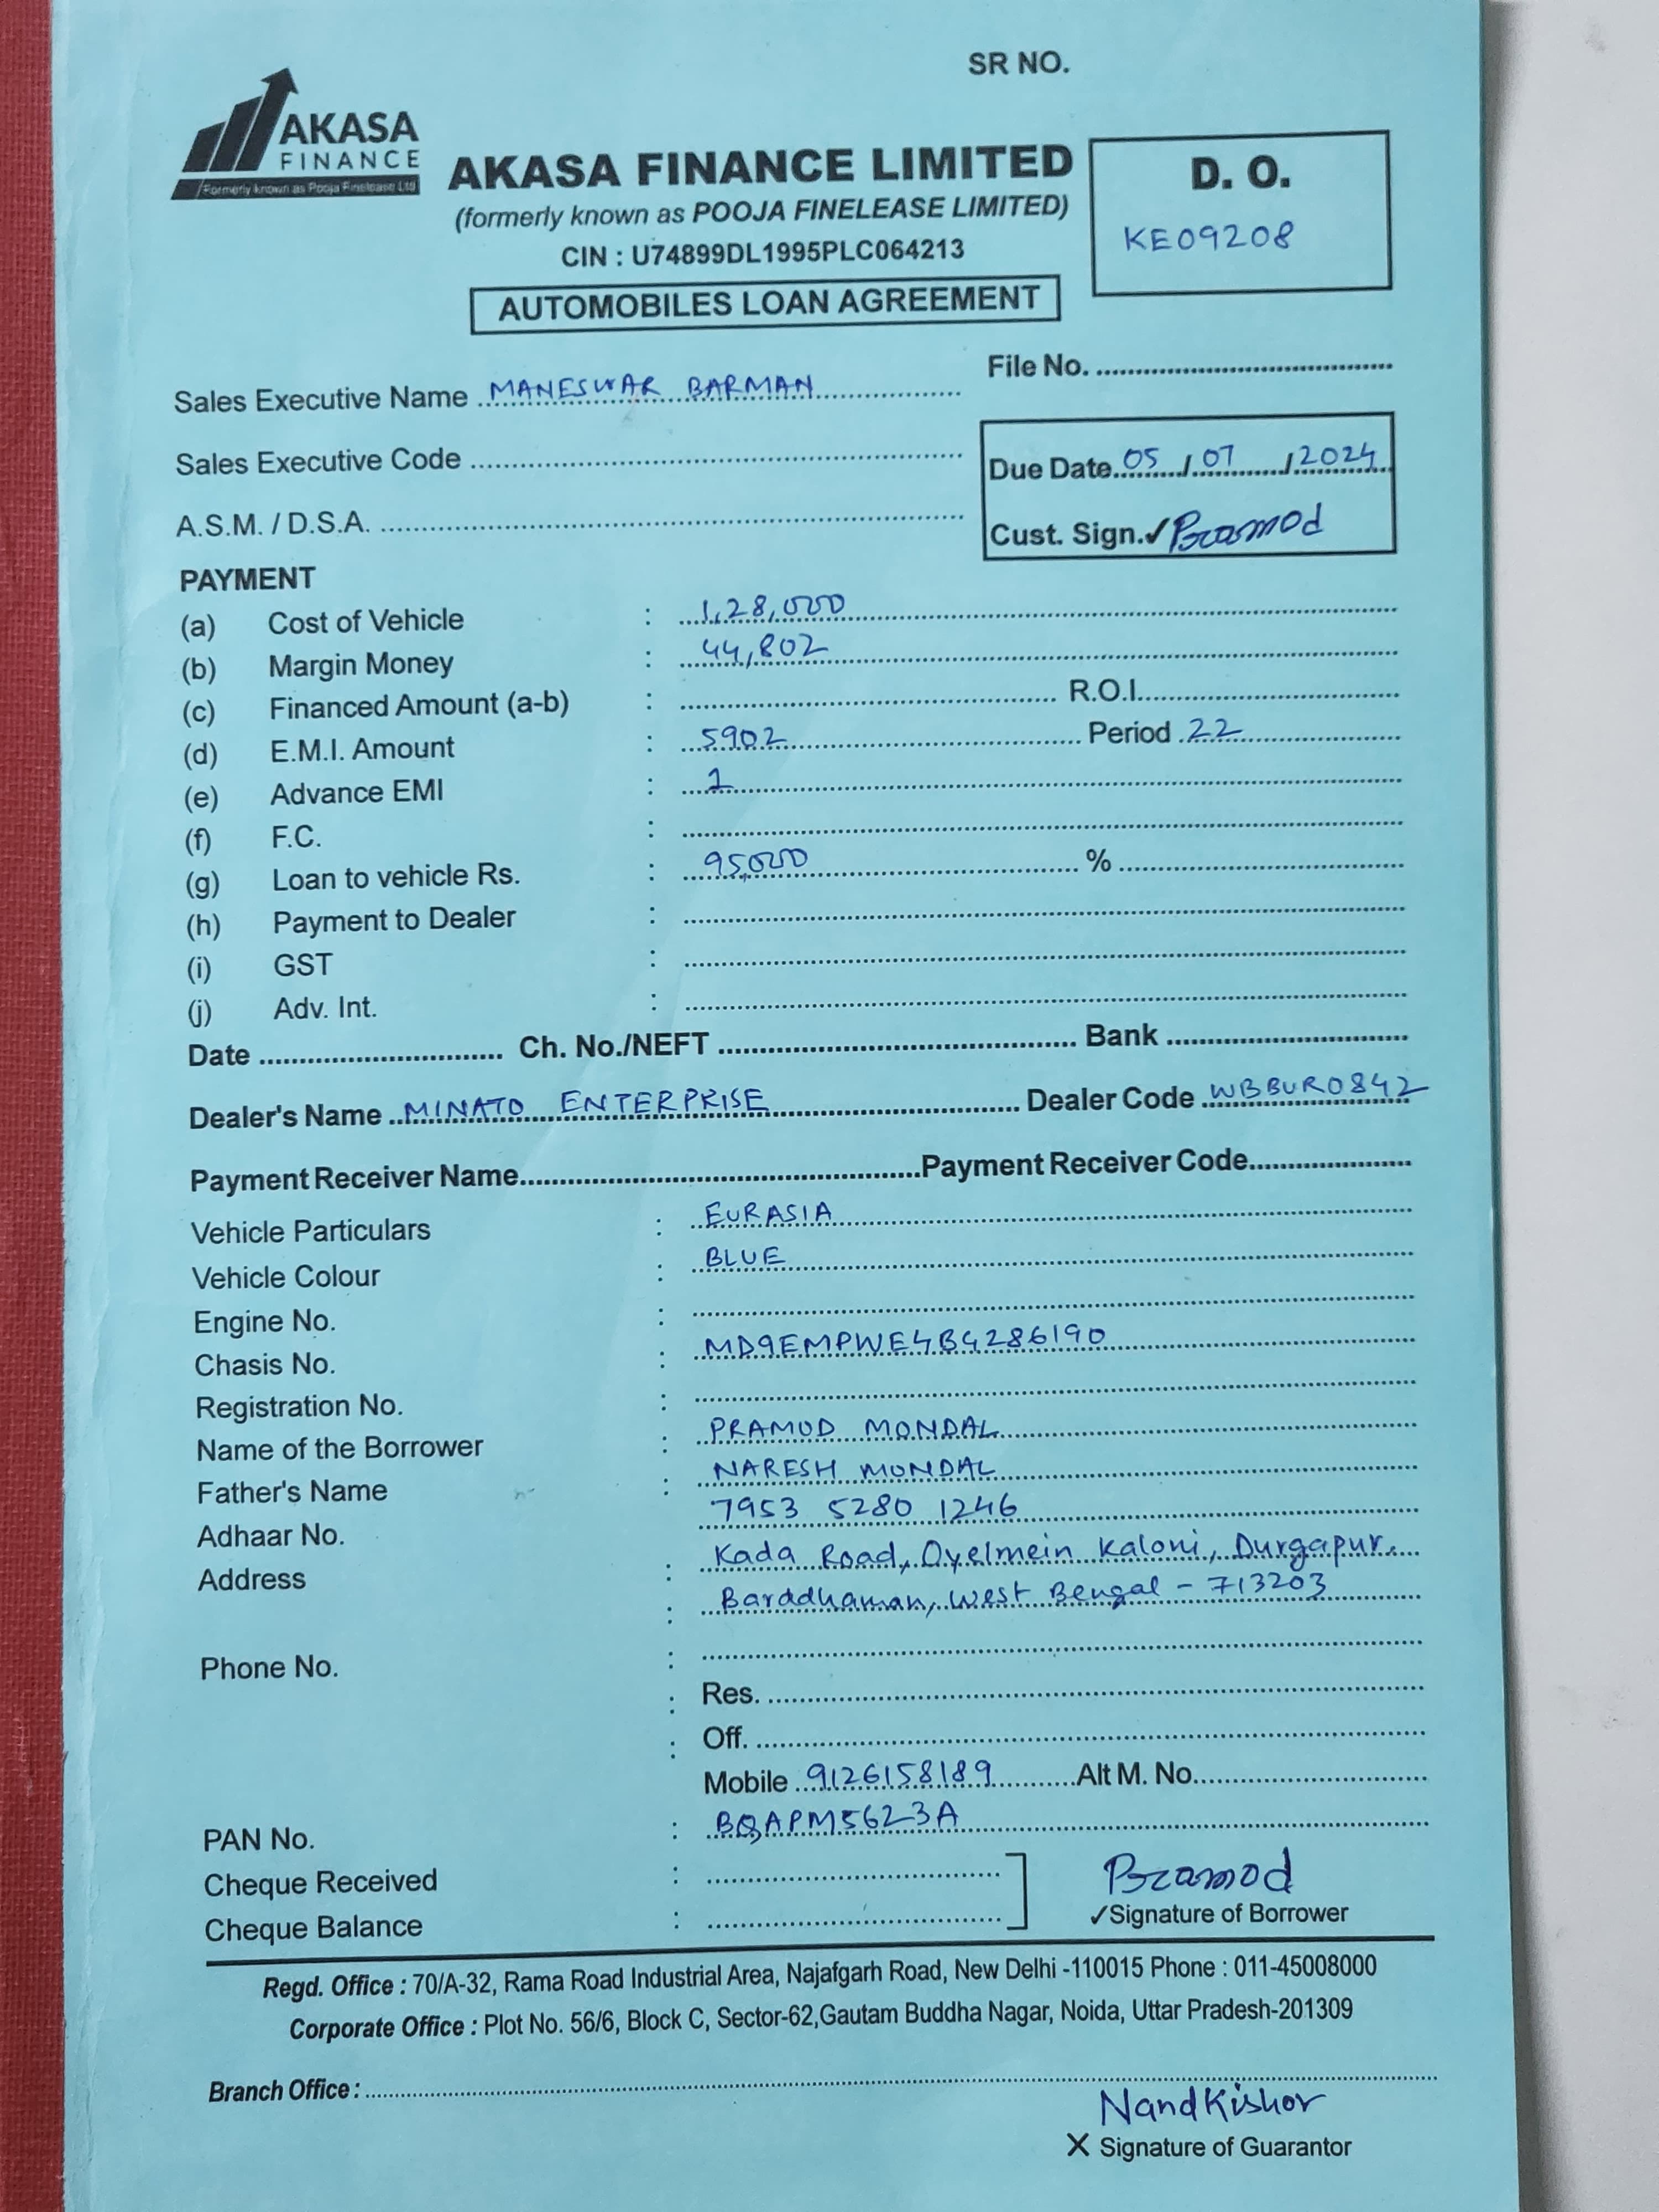 SR NO.
AKASA
FINANCE
Formerly known as Pooja Finelease Ltd
AKASA FINANCE LIMITED
(formerly known as POOJA FINELEASE LIMITED)
CIN : U74899DL1995PLC064213
AUTOMOBILES LOAN AGREEMENT
D. O.
KE09208
File No.
Sales Executive Name MANESWAR BARMAN
Sales Executive Code
Due Date 05 / 07 / 2024
A.S.M. / D.S.A.
Cust. Sign. ✓ Pramod
PAYMENT
(a) Cost of Vehicle : 1,28,000
(b) Margin Money : 44,802
(c) Financed Amount (a-b) : R.O.I.
(d) E.M.I. Amount : 5902 Period 22
(e) Advance EMI : 1
(f) F.C. :
(g) Loan to vehicle Rs. : 95,000 %
(h) Payment to Dealer :
(i) GST :
(j) Adv. Int. :
Date Ch. No./NEFT Bank
Dealer's Name MINATO ENTERPRISE Dealer Code WBBUR0842
Payment Receiver Name Payment Receiver Code
Vehicle Particulars : EURASIA
Vehicle Colour : BLUE
Engine No. :
Chasis No. : MD9EMPWE4B4286190
Registration No. :
Name of the Borrower : PRAMOD MONDAL
Father's Name : NARESH MONDAL
Adhaar No. 7953 5280 1246
Address : Kada Road, Oyelmein Kaloni, Durgapur,
: Barddhaman, West Bengal - 713203
Phone No. :
: Res.
: Off.
Mobile 9126158189 Alt M. No.
PAN No. : BQAPM5623A
Cheque Received :
Cheque Balance :
Pramod
✓Signature of Borrower
Regd. Office : 70/A-32, Rama Road Industrial Area, Najafgarh Road, New Delhi -110015 Phone : 011-45008000
Corporate Office : Plot No. 56/6, Block C, Sector-62,Gautam Buddha Nagar, Noida, Uttar Pradesh-201309
Branch Office :
NandKishor
X Signature of Guarantor